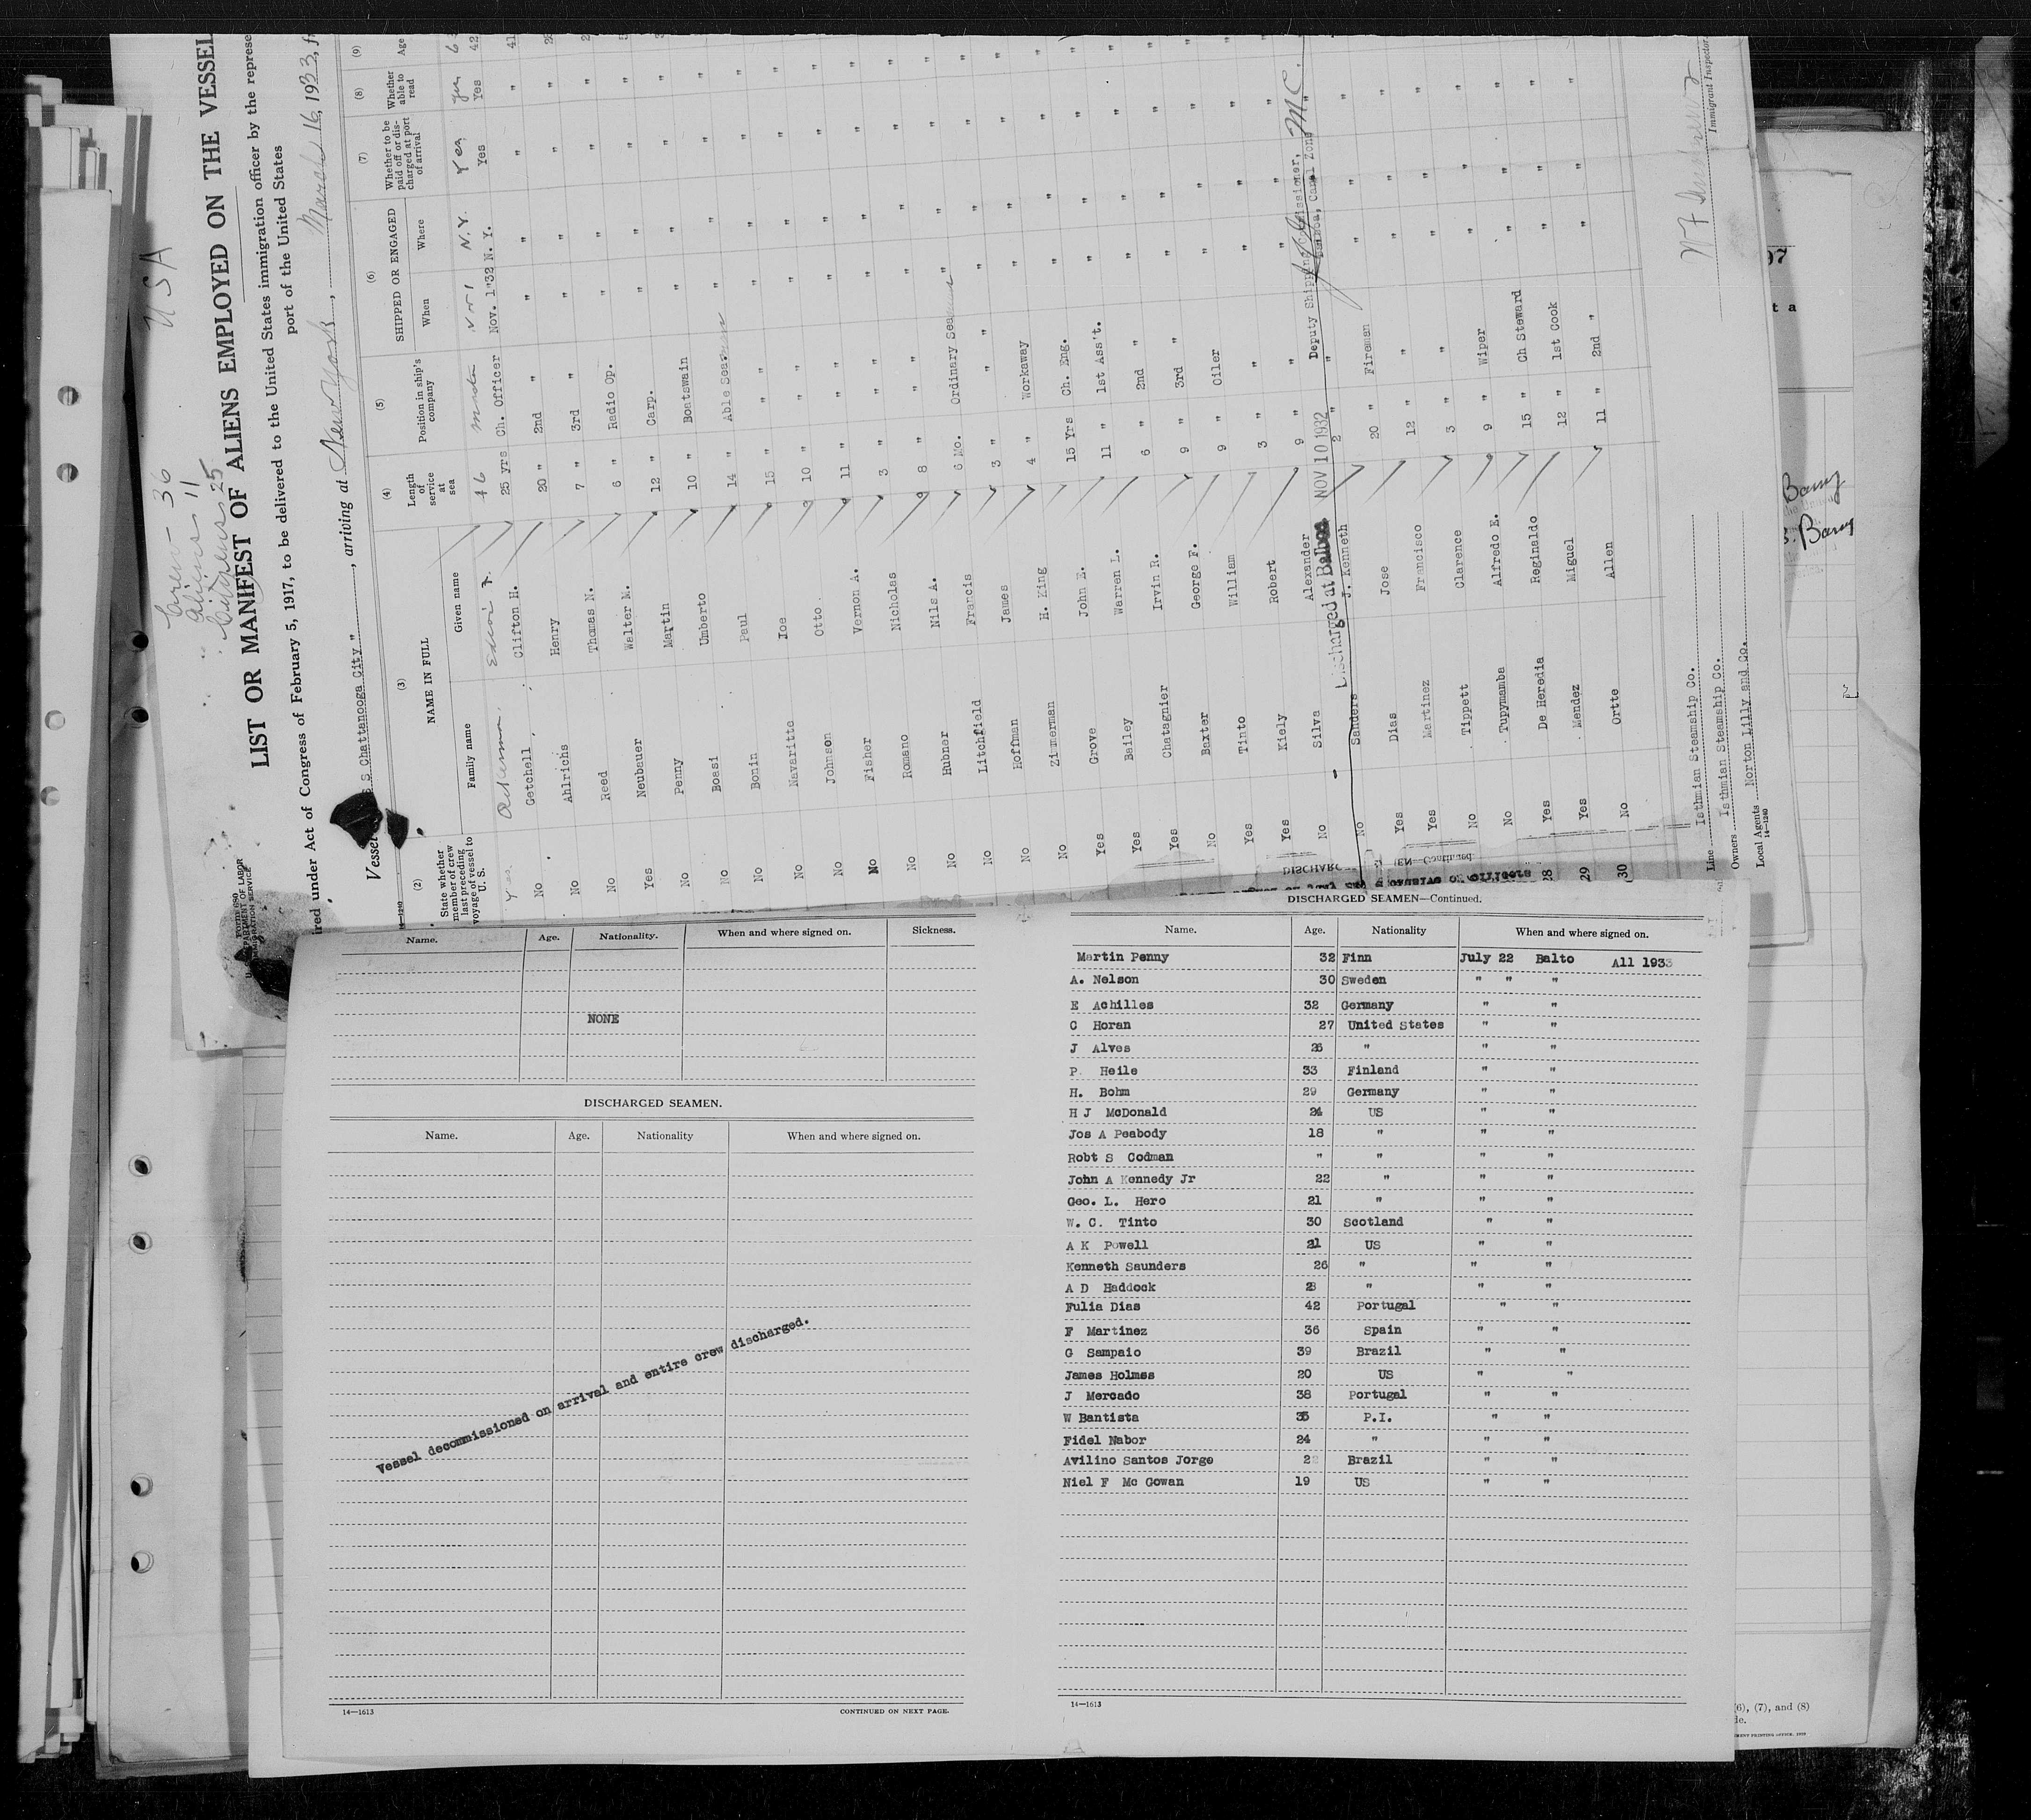 USA
Crew - 36
Aliens 11
Citizens 25
LIST OR MANIFEST OF ALIENS EMPLOYED ON THE VESSEL
ired under Act of Congress of February 5, 1917, to be delivered to the United States immigration officer by the represe
port of the United States
Vessel S S Chattanooga City", arriving at New York, March 16, 1933, fr
(2) (3) (4) (5) (6) (7) (8) (9)
State whether member of crew last preceding voyage of vessel to U. S.
NAME IN FULL
Family name Given name
Length of service at sea
Position in ship's company
SHIPPED OR ENGAGED
When Where
Whether to be paid off or discharged at port of arrival
Whether able to read
Age
Yes 46 Master Nov 1 N.Y. Yes yes
No Getchell Clifton H. 25 yrs Ch. Officer Nov. 1"32 N. Y. Yes Yes 42
No Ahlrichs Henry 20 " 2nd " " " " " 41
No Reed Thomas N. 7 " 3rd " " " " "
Yes Neubauer Walter M. 6 " Radio Op. " " " "
No Penny Martin 12 " Carp. " " " "
No Boasi Umberto 10 " Boatswain " " " "
No Bonin Paul 14 " Able Seaman " " " "
No Navaritte Joe 15 " " " " " "
No Johnson Otto. 10 " " " " " "
No Fisher Vernon A. 11 " " " " " "
No Romano Nicholas 3 " " " " " "
No Hubner Nils A. 8 " " " " " "
No Litchfield Francis 6 Mo. Ordinary Seaman " " " "
No Hoffman James 3 " " " " " " "
No Zimmerman H. King 4 " Workaway " " " "
Yes Grove John E. 15 Yrs Ch. Eng. " " " "
Yes Bailey Warren L. 11 " 1st Ass't. " " " "
Yes Chatagnier Irvin R. 6 " 2nd " " " " "
No Baxter George F. 9 " 3rd " " " " "
Yes Tinto William 9 " Oiler " " " "
Yes Kiely Robert 3 " " " " " "
No Silva Alexander 9 " " " " " "
Discharged at Balboa NOV 10 1932 Deputy Shipping Commissioner,
Balboa, Canal Zone
No Sanders J. Kenneth 2 " "
Yes Dias Jose 20 " Fireman " " " "
Yes Martinez Francisco 12 " " " " " "
No Tippett Clarence 3 " " " " " "
No Tupymamba Alfredo E. 9 " Wiper " " " "
Yes De Heredia Reginaldo 15 " Ch Steward " " " "
Yes Mendez Miguel 12 " 1st Cook " " " "
No Ortte Allen 11 " 2nd "
28
29
30
Line Isthmian Steamship Co.
Owners Isthmian Steamship Co.
Local Agents Norton Lilly and Co.
14-1240
Immigrant Inspector.
Name. Age. Nationality. When and where signed on. Sickness.
NONE
DISCHARGED SEAMEN.
Name. Age. Nationality When and where signed on.
Vessel decommissioned on arrival and entire crew discharged.
14—1613 CONTINUED ON NEXT PAGE.
DISCHARGED SEAMEN—Continued.
Name. Age. Nationality When and where signed on.
Martin Penny 32 Finn July 22 Balto All 1933
A. Nelson 30 Sweden " " "
E Achilles 32 Germany " "
C Horan 27 United States " "
J Alves 26 " " "
P. Heile 33 Finland " "
H. Bohm 29 Germany " "
H J McDonald 24 US " "
Jos A Peabody 18 " " "
Robt S Codman " " " "
John A Kennedy Jr 22 " " "
Geo. L. Hero 21 " " "
W. C. Tinto 30 Scotland " "
A K Powell 21 US " "
Kenneth Saunders 26 " " "
A D Haddock 23 " " "
Fulia Dias 42 Portugal " "
F Martinez 36 Spain " "
G Sampaio 39 Brazil " "
James Holmes 20 US " "
J Mercado 38 Portugal " "
W Bantista 35 P.I. " "
Fidel Nabor 24 " " "
Avilino Santos Jorge 22 Brazil " "
Niel F Mc Gowan 19 US " "
14—1613
97
t a
Barry
Barry
(6), (7), and (8)